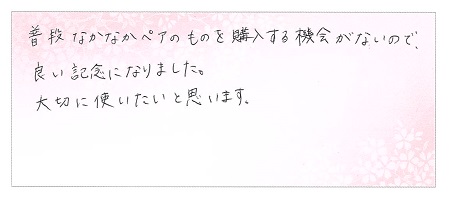 普段なかなかペアのものを購入する機会がないので、
良い記念になりました。
大切に使いたいと思います。